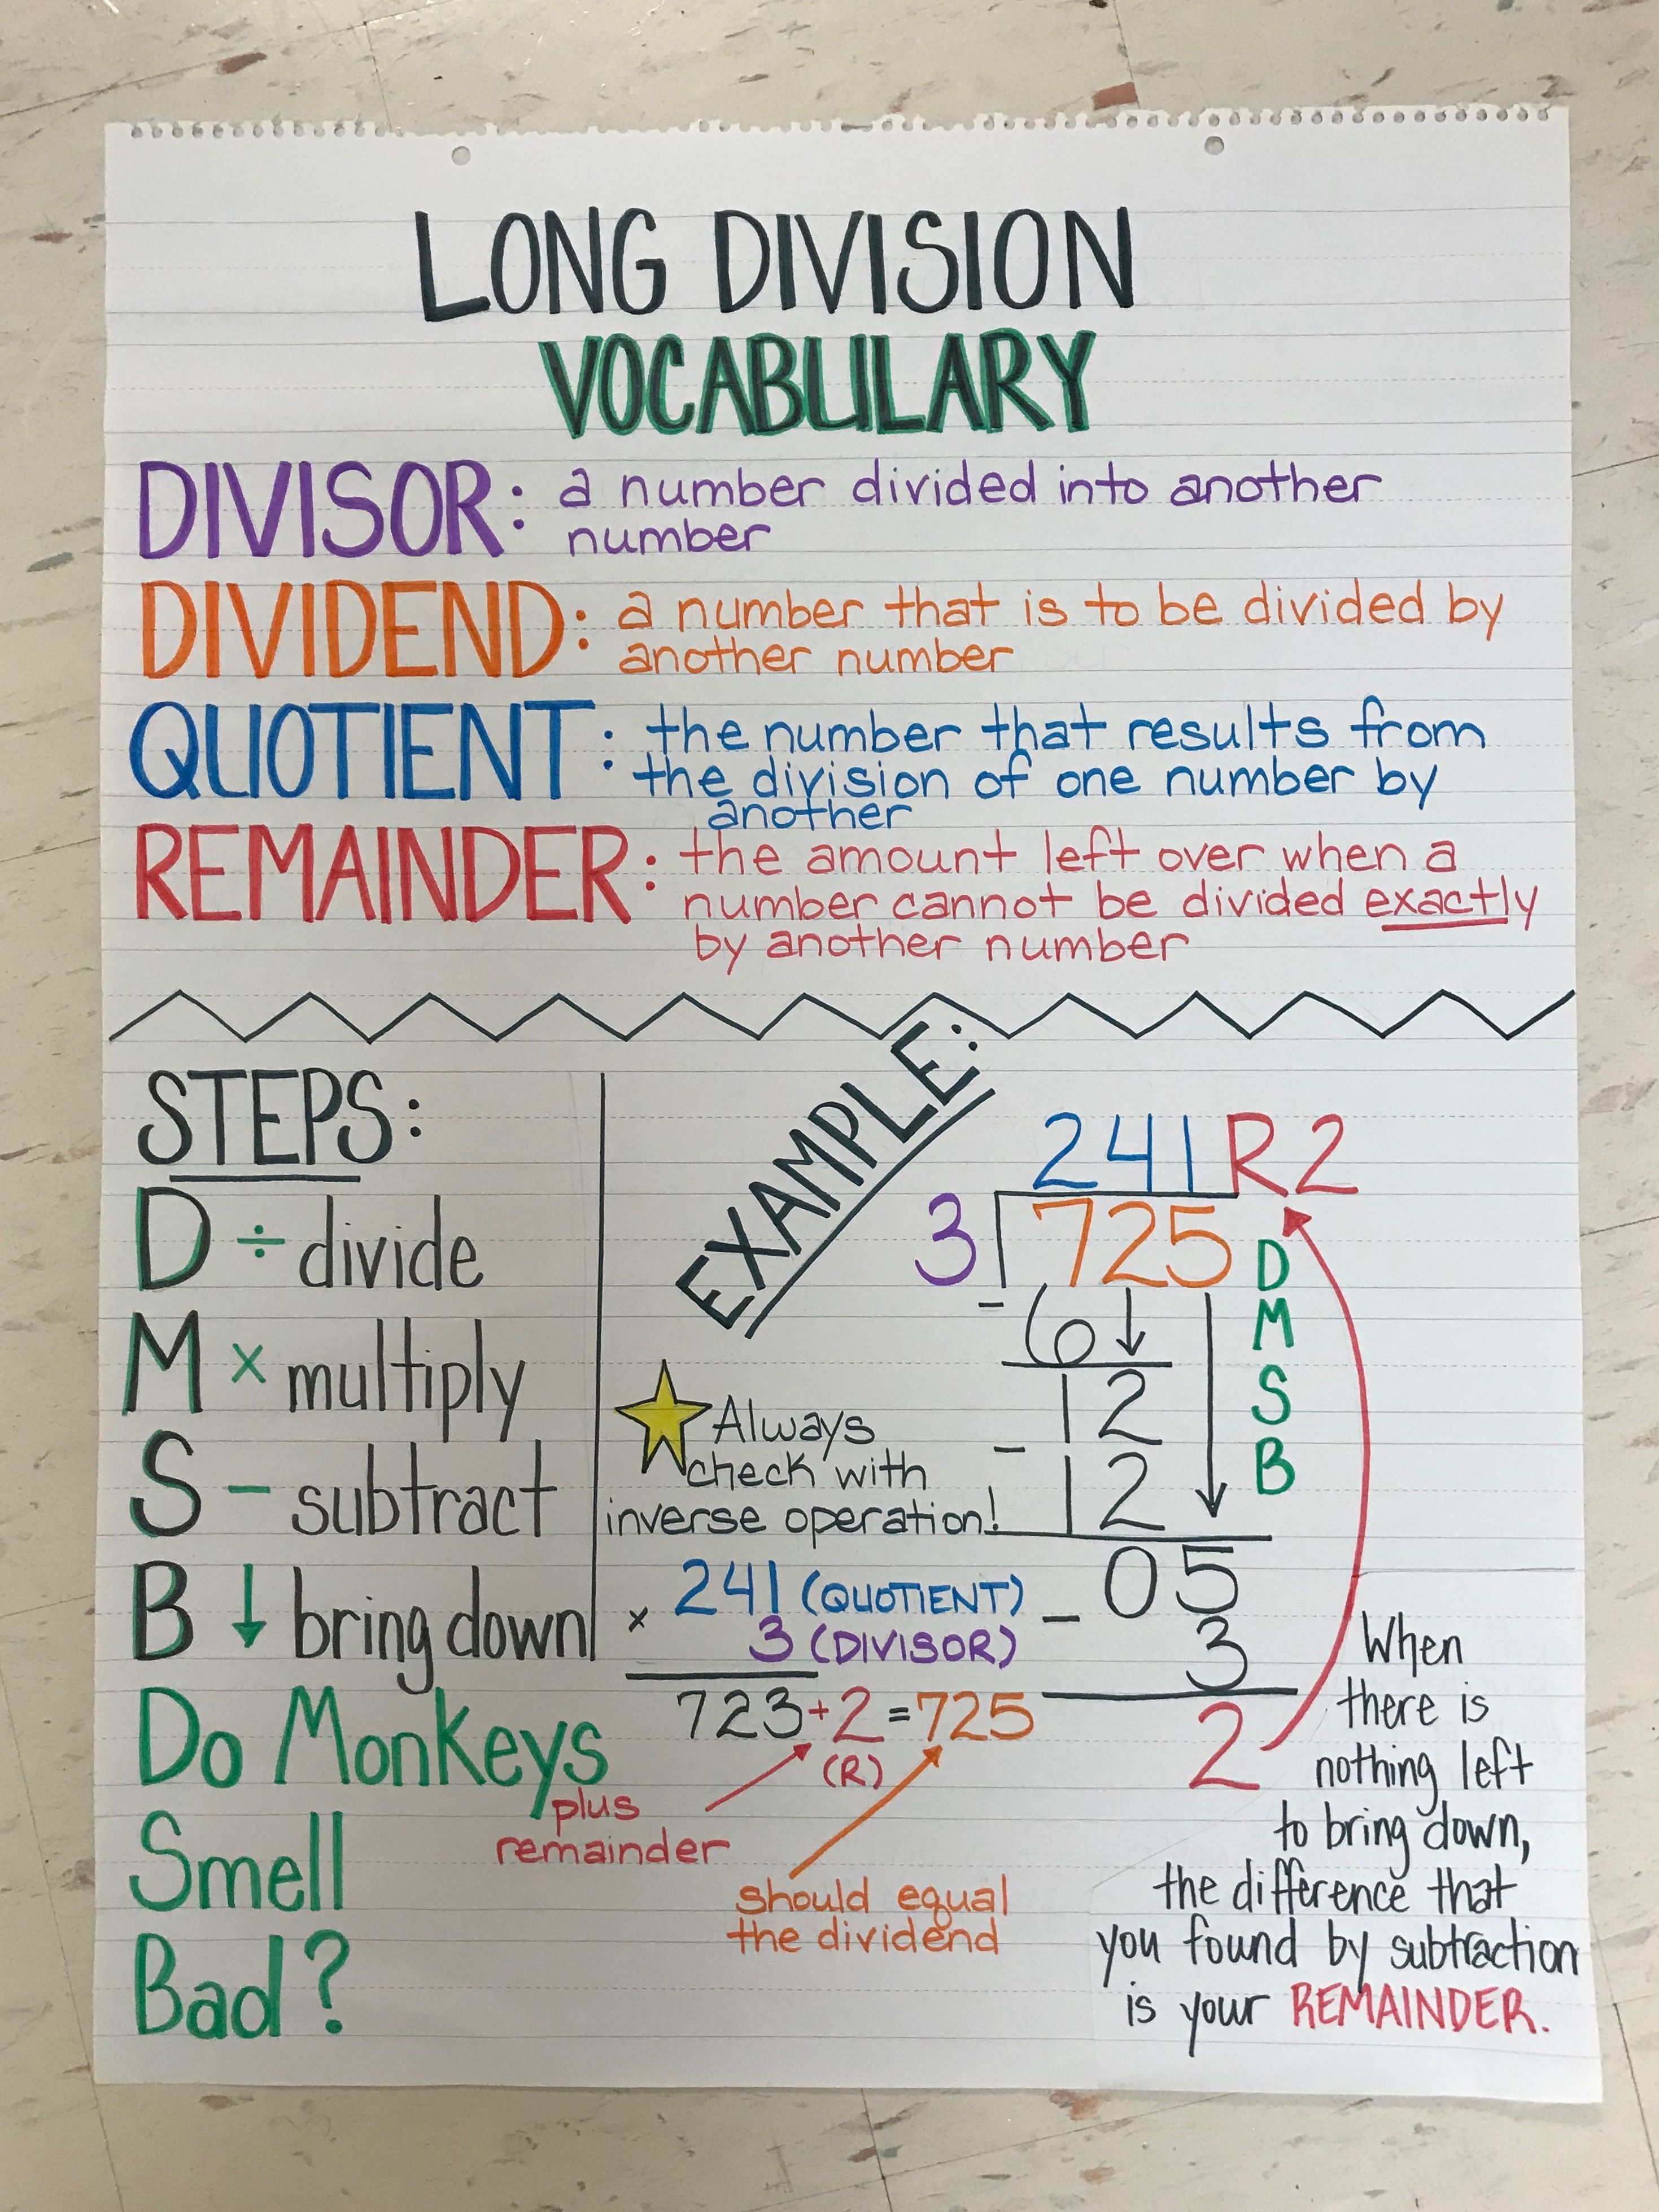 LONG DIVISION
VOCABULARY
DIVISOR: a number divided into another
number
DIVIDEND: a number that is to be divided by
another number
QUOTIENT: the number that results from
the division of one number by
another
REMAINDER: the amount left over when a
number cannot be divided exactly
by another number
STEPS:
D ÷ divide
M × multiply
S - subtract
B ↓ bring down
Do Monkeys
Smell
Bad?
EXAMPLE:
241 R2
3 725
- 6 ↓
12
- 12
05
- 3
2
D
M
S
B
Always
check with
inverse operation!
241 (QUOTIENT)
× 3 (DIVISOR)
723 + 2 = 725
(R)
plus
remainder
should equal
the dividend
When
there is
nothing left
to bring down,
the difference that
you found by subtraction
is your REMAINDER.